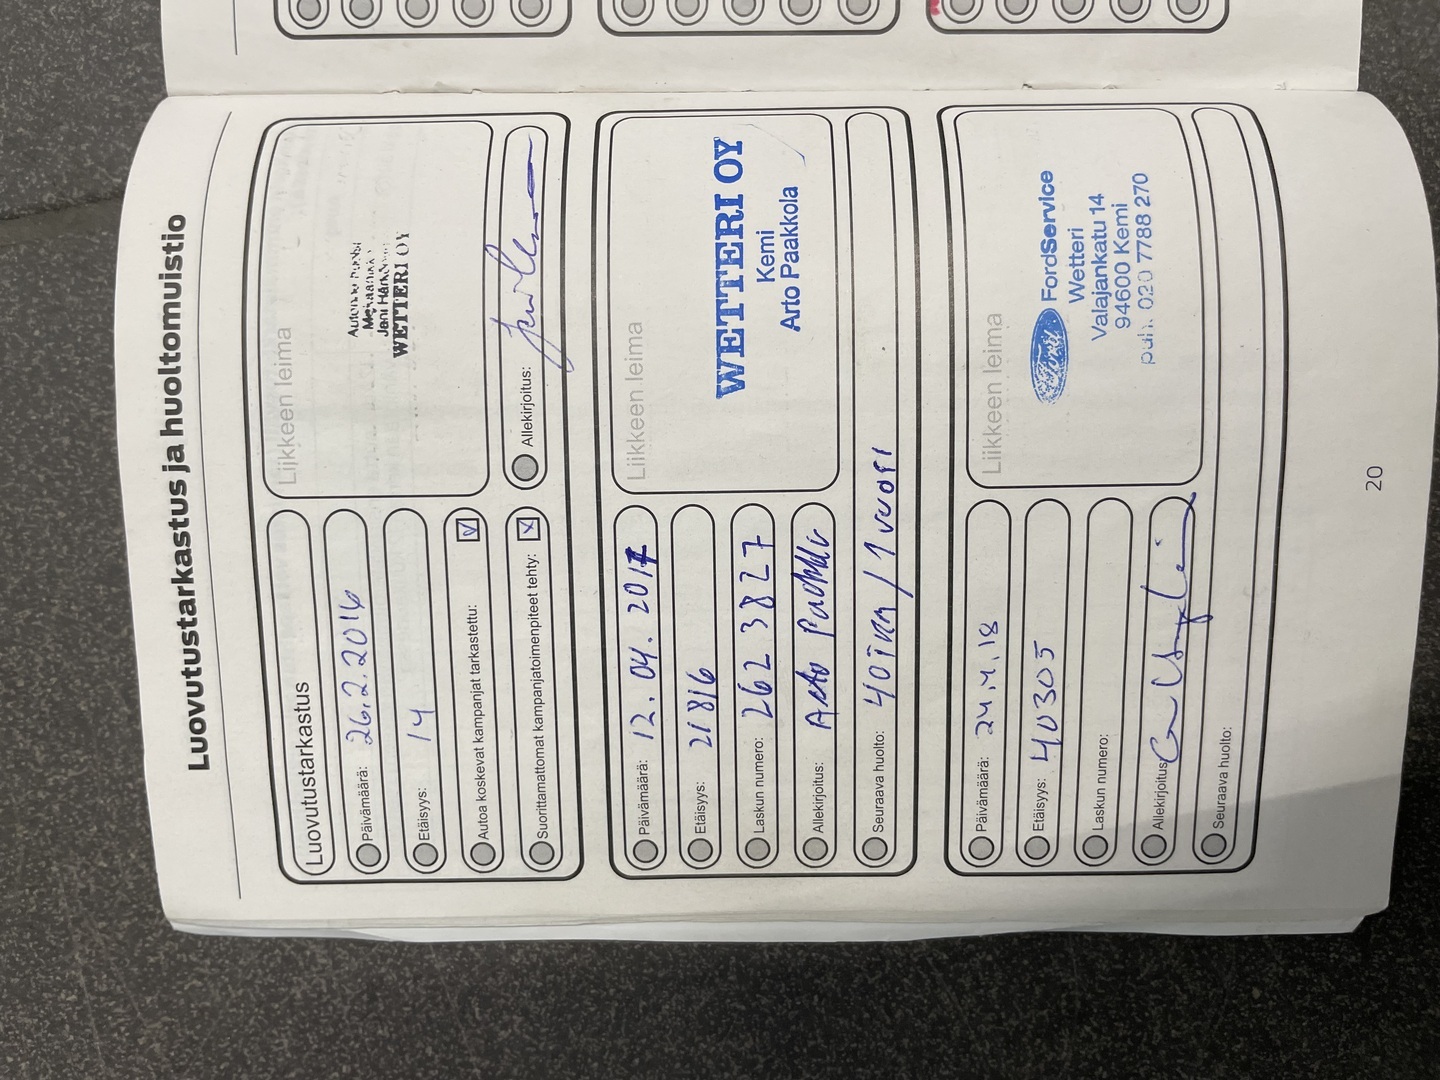 Luovutustarkastus ja huoltomuistio
Luovutustarkastus
Päivämäärä: 26.2.2016
Etäisyys: 14
Autoa koskevat kampanjat tarkastettu:
Suorittamattomat kampanjatoimenpiteet tehty: x
Liikkeen leima
WETTERI OY
Allekirjoitus:
Päivämäärä: 12.04.2017
Etäisyys: 21816
Laskun numero: 262 3827
Allekirjoitus: Arto
Seuraava huolto: 40 / 1 vuosi
Liikkeen leima
WETTERI OY
Kemi
Arto Paakkola
Päivämäärä: 24.4.18
Etäisyys: 40305
Laskun numero:
Allekirjoitus:
Seuraava huolto:
Liikkeen leima
Ford FordService
Wetteri
Valajankatu 14
94600 Kemi
puh. 020 7788 270
20